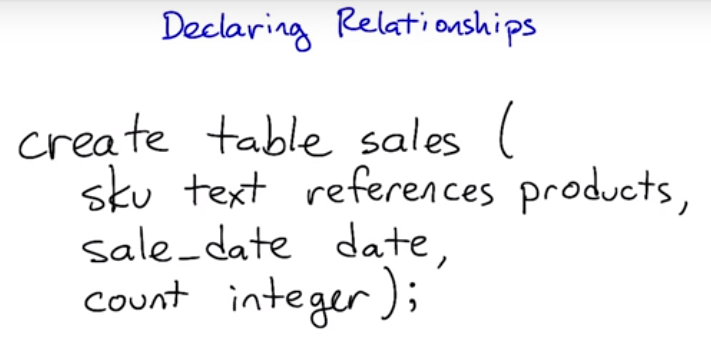 Declaring Relationships
create table sales (
sku text references products,
sale_date date,
count integer);